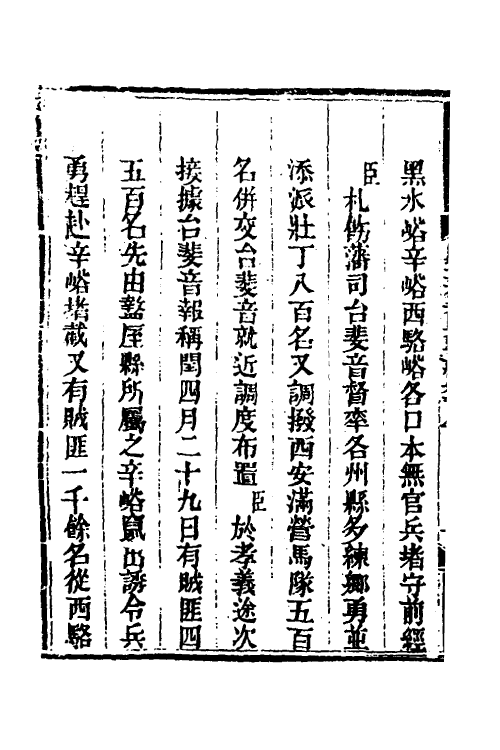 黑水峪辛峪西駱峪各口本無官兵堵守前經
臣札飭藩司台斐音督率各州縣多練鄉勇並
添派壯丁八百名又調撥西安滿營馬隊五百
名併交台斐音就近調度布置臣於孝義途次
接據台斐音報稱閏四月二十九日有賊匪四
五百名先由盩厔縣所屬之辛峪竄出誘令兵
勇趕赴辛峪堵截又有賊匪一千餘名從西駱